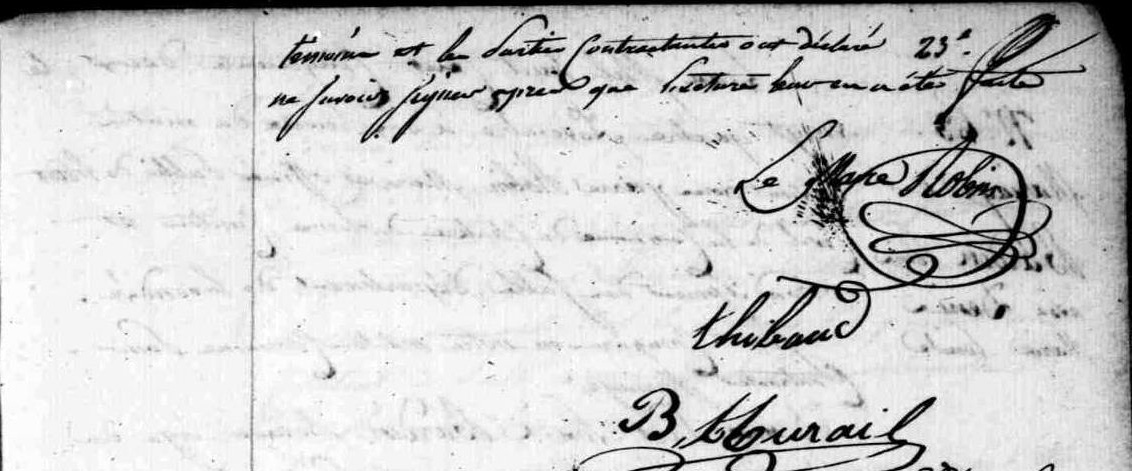 témoins et les parties Contractantes ont déclaré 23e.
ne savoir signer après que lecture leur en a été faite
Le Maire Robin
thibaud
B, thurail